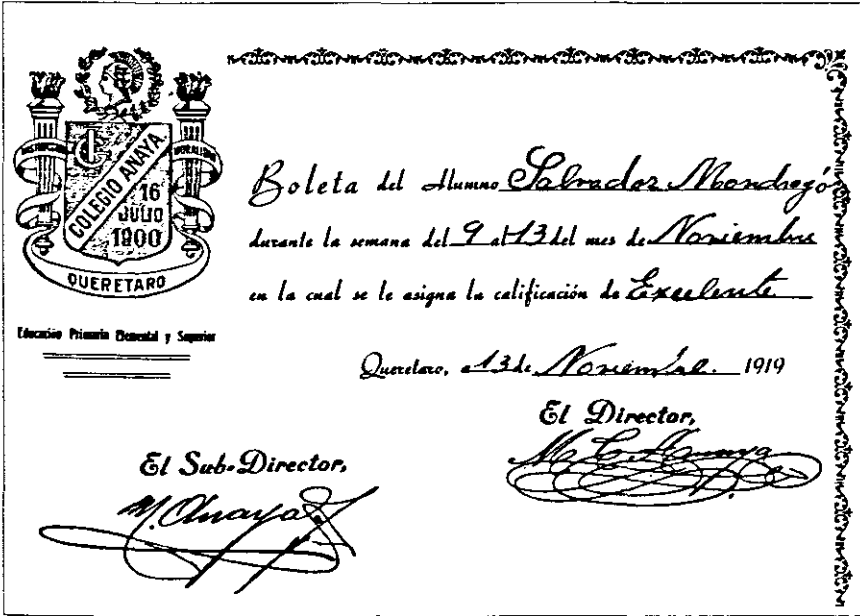 INSTRUCCION
MORALISMO
COLEGIO ANAYA
16
JULIO
1900
QUERETARO
Educación Primaria Elemental y Superior
Boleta del Alumno Salvador Mondragó
durante la semana del 9 al 13 del mes de Noviembre
en la cual se le asigna la calificación de Excelente
Queretaro, a 13 de Noviembre. 1919
El Director,
M. C. Anaya
El Sub-Director,
M. Anaya